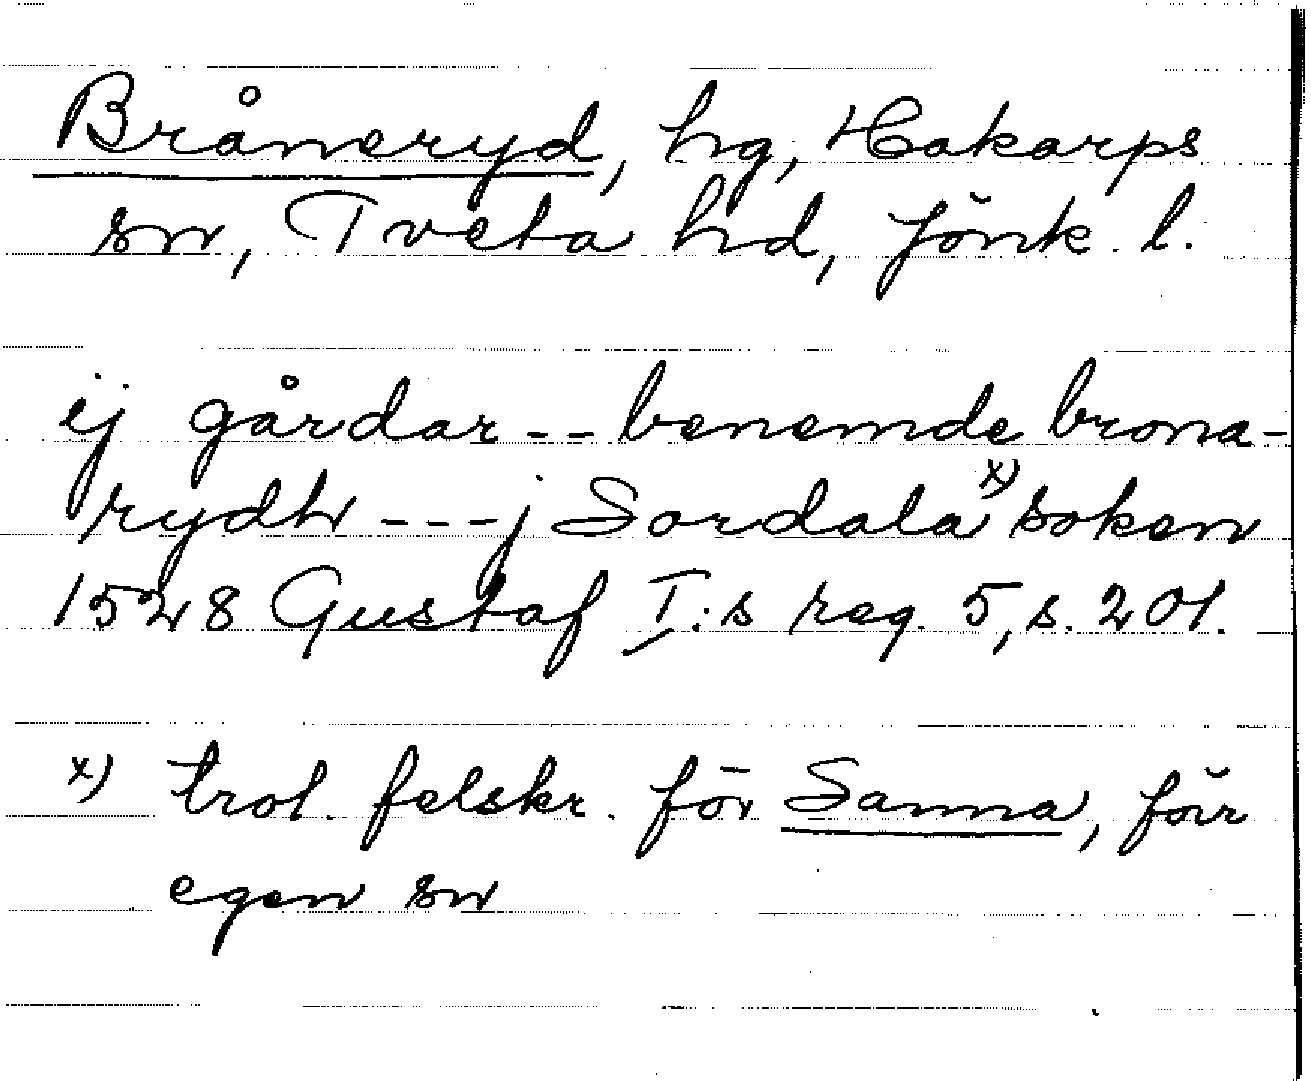 Bråneryd, hg, Hakarps
sn, Tveta hd, Jönk. l.
ij gårdar -- benemde brona-
rydh --- j Sordala x) soken
1528 Gustaf I:s reg. 5, s. 201.
x) trol. felskr. för Sanna, förr
egen sn